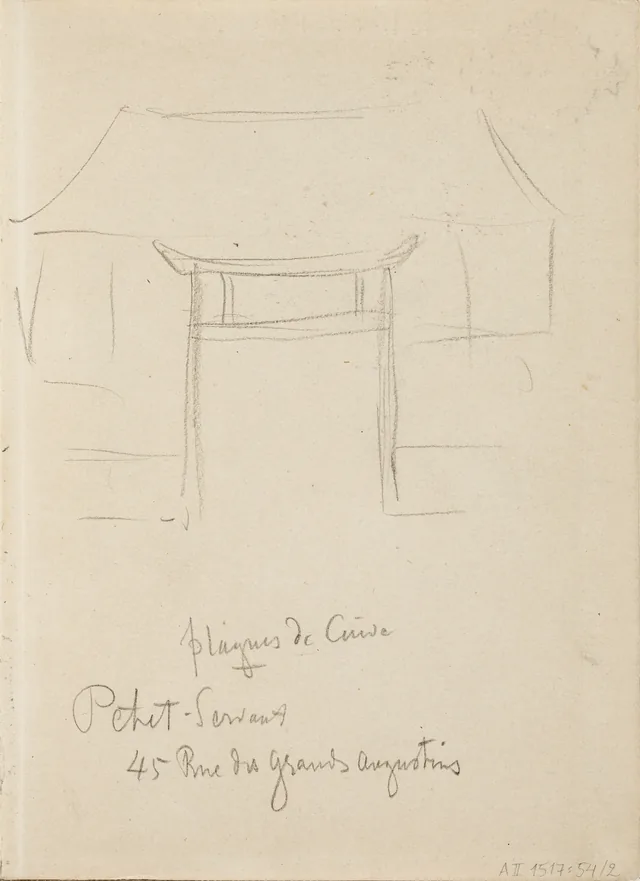 plaques de Cuivre
Petit-Servant
45 Rue des grands augustins
A II 1517:54/2